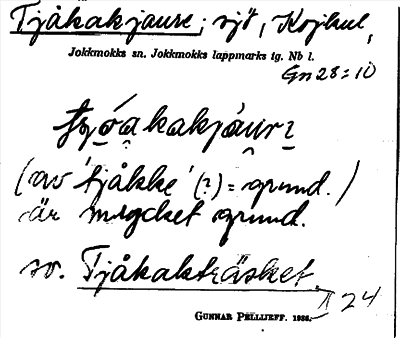 Tjåkakjaure; sjö, Kojkul,
Jokkmokks sn. Jokkmokks lappmarks tg. Nb l.
Gn 28:10
(av 'tjåkke' (?) = grund.)
är mycket grund.
sv. Tjåkakträsket
24
GUNNAR PELLIJEFF. 1938.